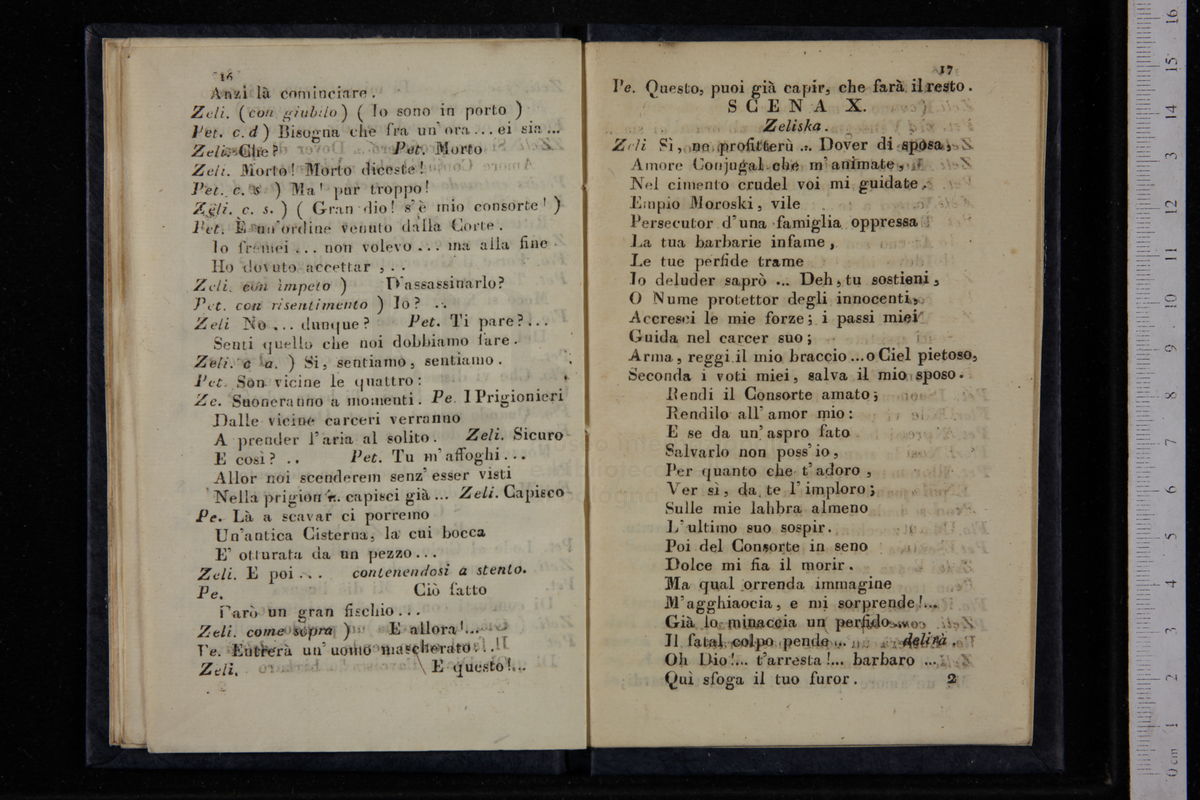 16
Anzi là cominciare.
Zeli. (con giubilo) ( Io sono in porto )
Pet. c.d) Bisogna che fra un'ora... ei sia...
Zeli. Che? Pet. Morto
Zeli. Morto! Morto diceste!
Pet. c. s ) Ma! pur troppo!
Zeli. c. s. ) ( Gran dio! s'è mio consorte! )
Pet. È un'ordine venuto dalla Corte.
Io fremei ... non volevo ... ma alla fine
Ho dovuto accettar ...
Zeli. con impeto ) D'assassinarlo?
Pet. con risentimento ) Io? ..
Zeli No ... dunque? Pet. Ti pare?...
Senti quello che noi dobbiamo fare.
Zeli. c a. ) Si, sentiamo, sentiamo.
Pet. Son vicine le quattro:
Ze. Suoneranno a momenti. Pe. I Prigionieri
Dalle vicine carceri verranno
A prender l'aria al solito. Zeli. Sicuro
E così? .. Pet. Tu m'affoghi...
Allor noi scenderem senz'esser visti
Nella prigion ... capisci già ... Zeli. Capisco
Pe. Là a scavar ci porremo
Un'antica Cisterna, la cui bocca
E' otturata da un pezzo...
Zeli. E poi... contenendosi a stento.
Pe. Ciò fatto
Farò un gran fischio...
Zeli. come sopra ) E allora!...
Pe. Entrerà un'uomo mascherato...
Zeli. E questo!...
17
Pe. Questo, puoi già capir, che farà il resto.
SCENA X.
Zeliska.
Zeli Sì, ne profitterù ... Dover di sposa,
Amore Conjugal che m'animate,
Nel cimento crudel voi mi guidate.
Empio Moroski, vile
Persecutor d'una famiglia oppressa
La tua barbarie infame,
Le tue perfide trame
Io deluder saprò ... Deh, tu sostieni,
O Nume protettor degli innocenti,
Accresci le mie forze; i passi miei
Guida nel carcer suo;
Arma, reggi il mio braccio...o Ciel pietoso,
Seconda i voti miei, salva il mio sposo.
Rendi il Consorte amato;
Rendilo all'amor mio:
E se da un'aspro fato
Salvarlo non poss'io,
Per quanto che t'adoro,
Ver sì, da te l'imploro;
Sulle mie labbra almeno
L'ultimo suo sospir.
Poi del Consorte in seno
Dolce mi fia il morir.
Ma qual orrenda immagine
M'agghiaocia, e mi sorprende!...
Già lo minaccia un perfido...
Il fatal colpo pende... delira.
Oh Dio!... t'arresta!... barbaro ...
Quì sfoga il tuo furor. 2